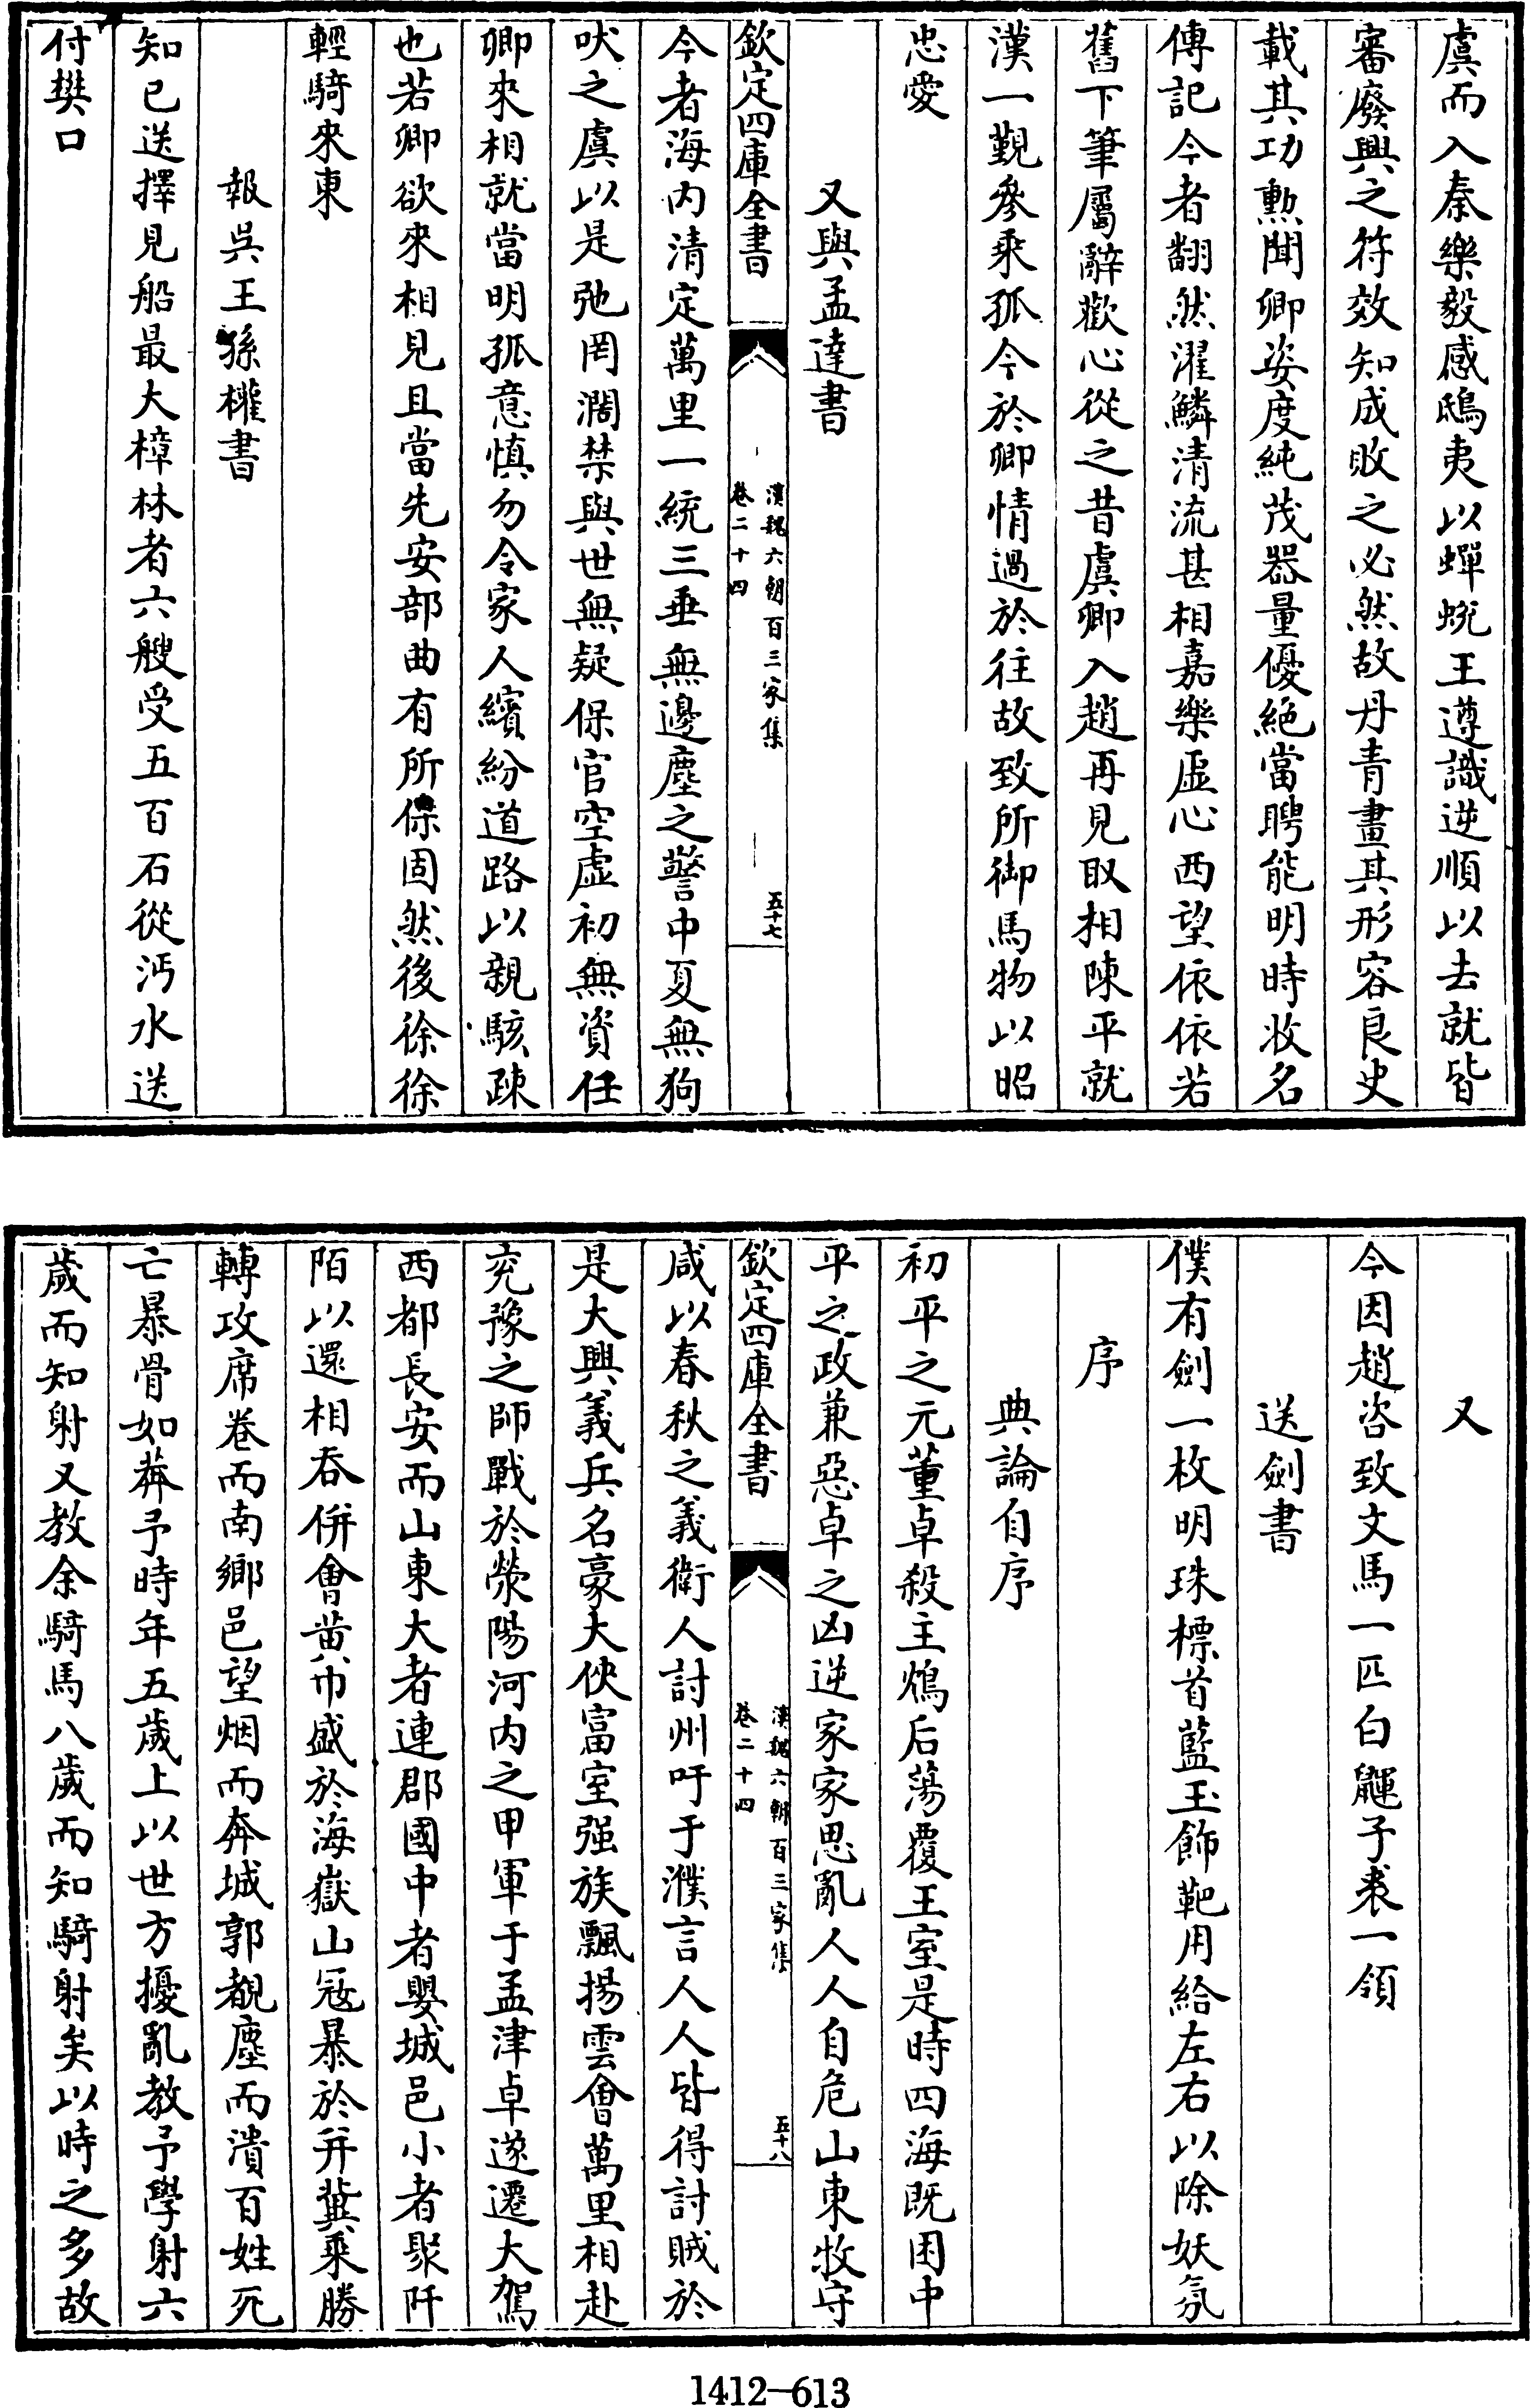 虞而入秦樂毅感鴟夷以蟬蛻王遵識逆順以去就皆
審廢興之符效知成敗之必然故丹青畫其形容良史
載其功勲聞卿姿度純茂器量優絶當聘能明時收名
傳記今者翻然濯鱗清流甚相嘉樂虛心西望依依若
舊下筆屬辭歡心從之昔虞卿入趙再見取相陳平就
漢一覲參乘孤今於卿情過於往故致所御馬物以昭
忠愛
又與孟達書
欽定四庫全書
漢魏六朝百三家集
卷二十四
五十七
今者海内清定萬里一統三垂無邊塵之警中夏無狗
吠之虞以是弛罔濶禁與世無疑保官空虛初無資任
卿來相就當明孤意慎勿令家人繽紛道路以親駭疎
也若卿欲來相見且當先安部曲有所保固然後徐徐
輕騎來東
報吳王孫權書
知已送擇見船最大樟林者六艘受五百石從沔水送
付樊口
又
今因趙咨致文馬一匹白鼲子裘一領
送劍書
僕有劍一枚明珠標首藍玉飾靶用給左右以除妖氛
序
典論自序
初平之元董卓殺主鴆后蕩覆王室是時四海既困中
平之政兼惡卓之凶逆家家思亂人人自危山東牧守
欽定四庫全書
漢魏六朝百三家集
卷二十四
五十八
咸以春秋之義衛人討州吁于濮言人人皆得討賊於
是大興義兵名豪大俠富室强族飄揚雲會萬里相赴
兖豫之師戰於滎陽河内之甲軍于孟津卓遂遷大駕
西都長安而山東大者連郡國中者嬰城邑小者聚阡
陌以還相吞併會黄巾盛於海嶽山冦暴於并冀乘勝
轉攻席卷而南鄉邑望烟而奔城郭覩塵而潰百姓死
亡暴骨如莽予時年五歲上以世方擾亂教予學射六
歲而知射又教余騎馬八歲而知騎射矣以時之多故
1412—613